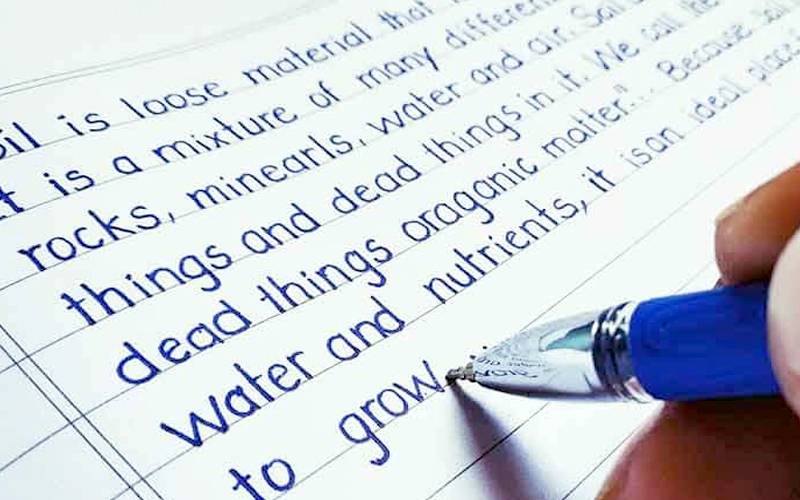 is loose material that
is a mixture of many different
rocks, minearls, water and air. Soil
things and dead things in it. We call the
dead things oraganic matter"... Because soil
water and nutrients, it isan ideal place
to grow